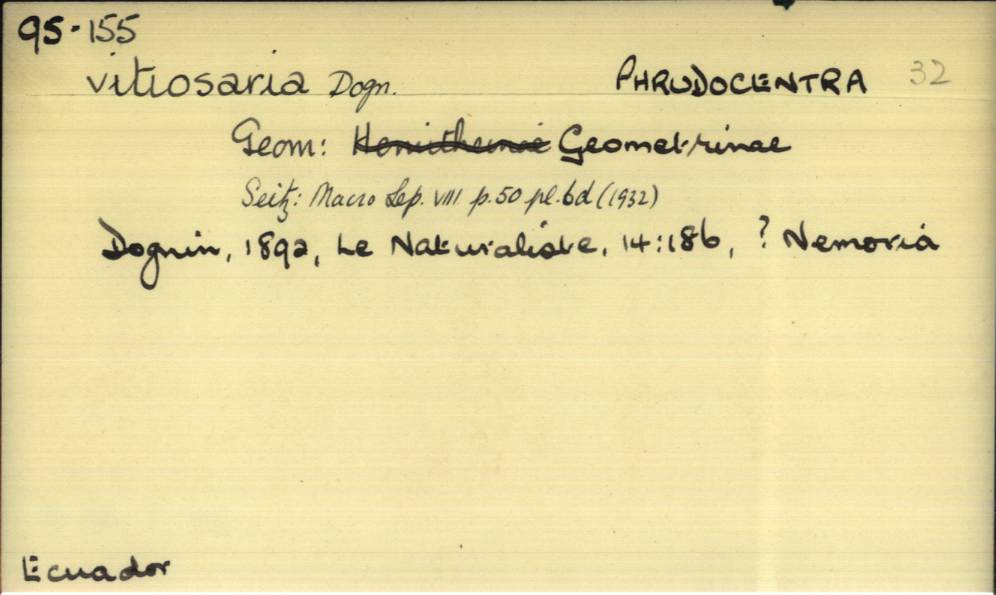 95-155
vitiosaria Dogn. PHRUDOCENTRA 32
Geom: Hemitheinae Geometrinae
Seitz: Macro Lep. VIII. p.50 pl.6d (1932)
Dognin, 1892, Le Naturaliste, 14:186, ? Nemoria
Ecuador